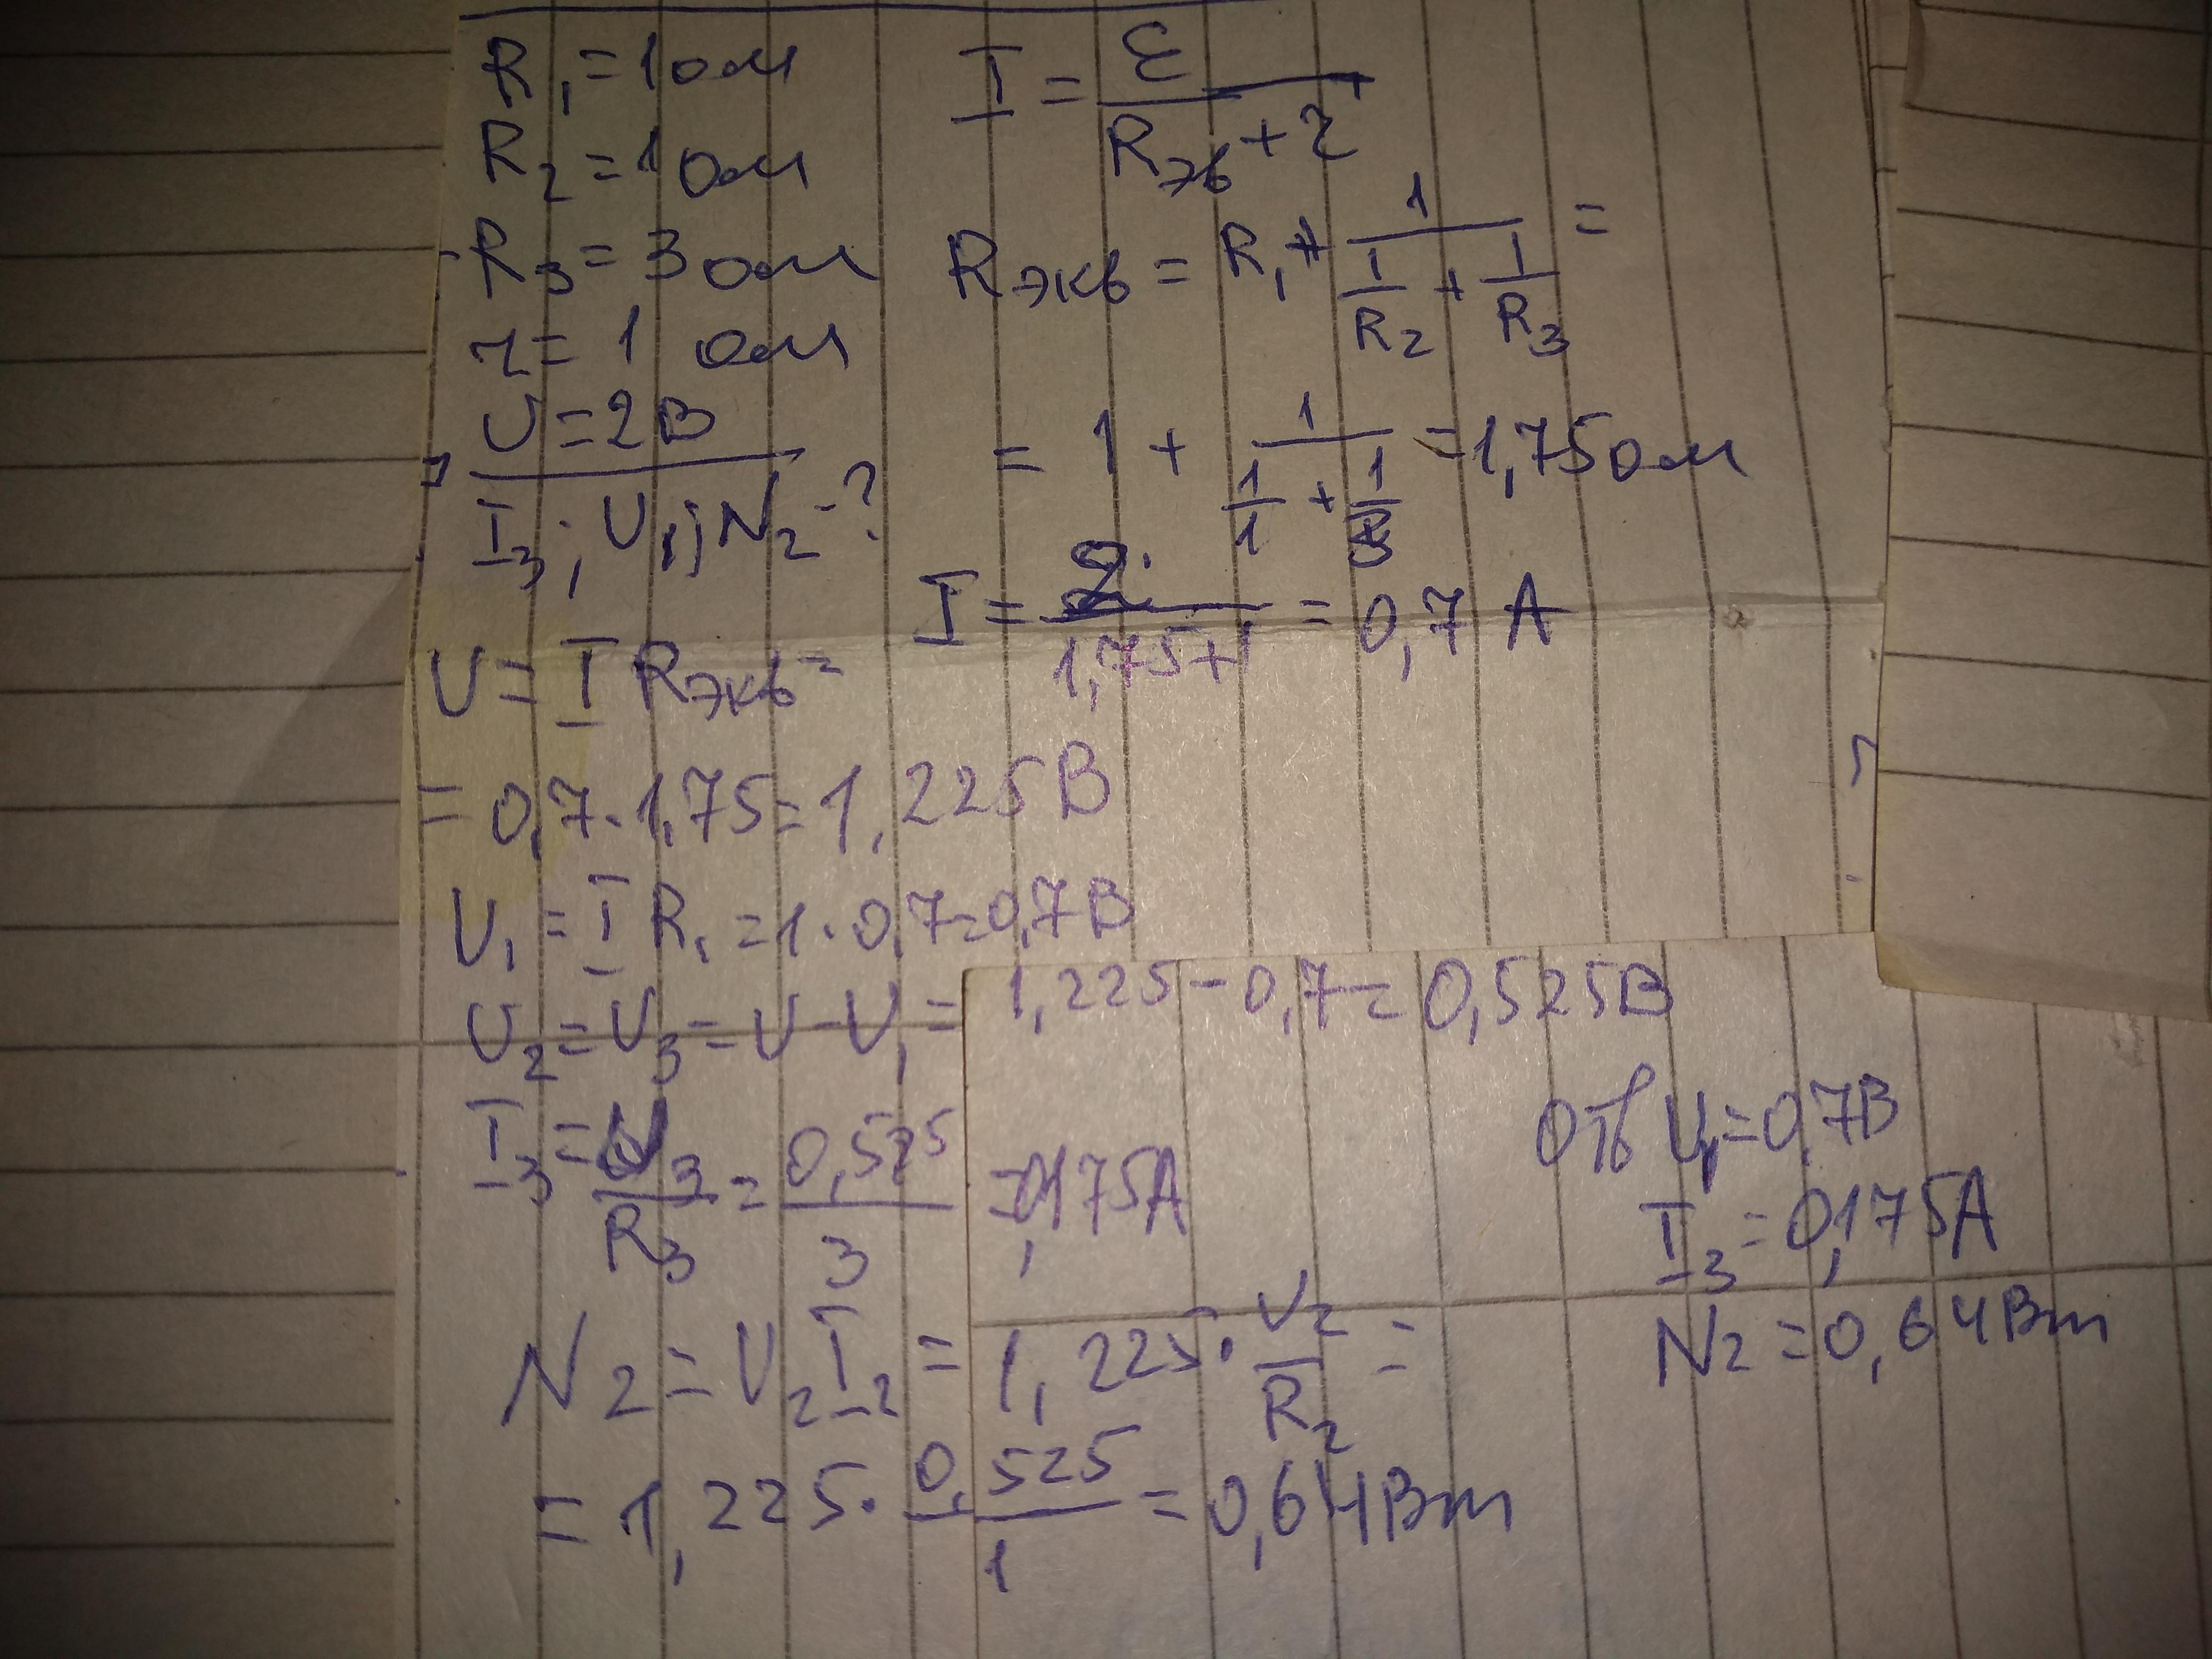 R₁ = 1 Ом
R₂ = 1 Ом
R₃ = 3 Ом
r = 1 Ом
U = 2 В
I₃; U₁; N₂ - ?
I = ε / (Rэв + r)
Rэкв = R₁ + 1 / (1/R₂ + 1/R₃) =
= 1 + 1 / (1/1 + 1/3) = 1,75 Ом
I = 2 / (1,75 + 1) = 0,7 А
U = I Rэкв =
= 0,7 · 1,75 = 1,225 В
U₁ = I R₁ = 1 · 0,7 = 0,7 В
U₂ = U₃ = U - U₁ = 1,225 - 0,7 = 0,525 В
I₃ = U₃ / R₃ = 0,525 / 3 = 0,175 А
N₂ = U₂ I₂ = 1,225 · U₂ / R₂ =
= 1,225 · 0,525 / 1 = 0,64 Вт
Отв U₁ = 0,7 В
I₃ = 0,175 А
N₂ = 0,64 Вт